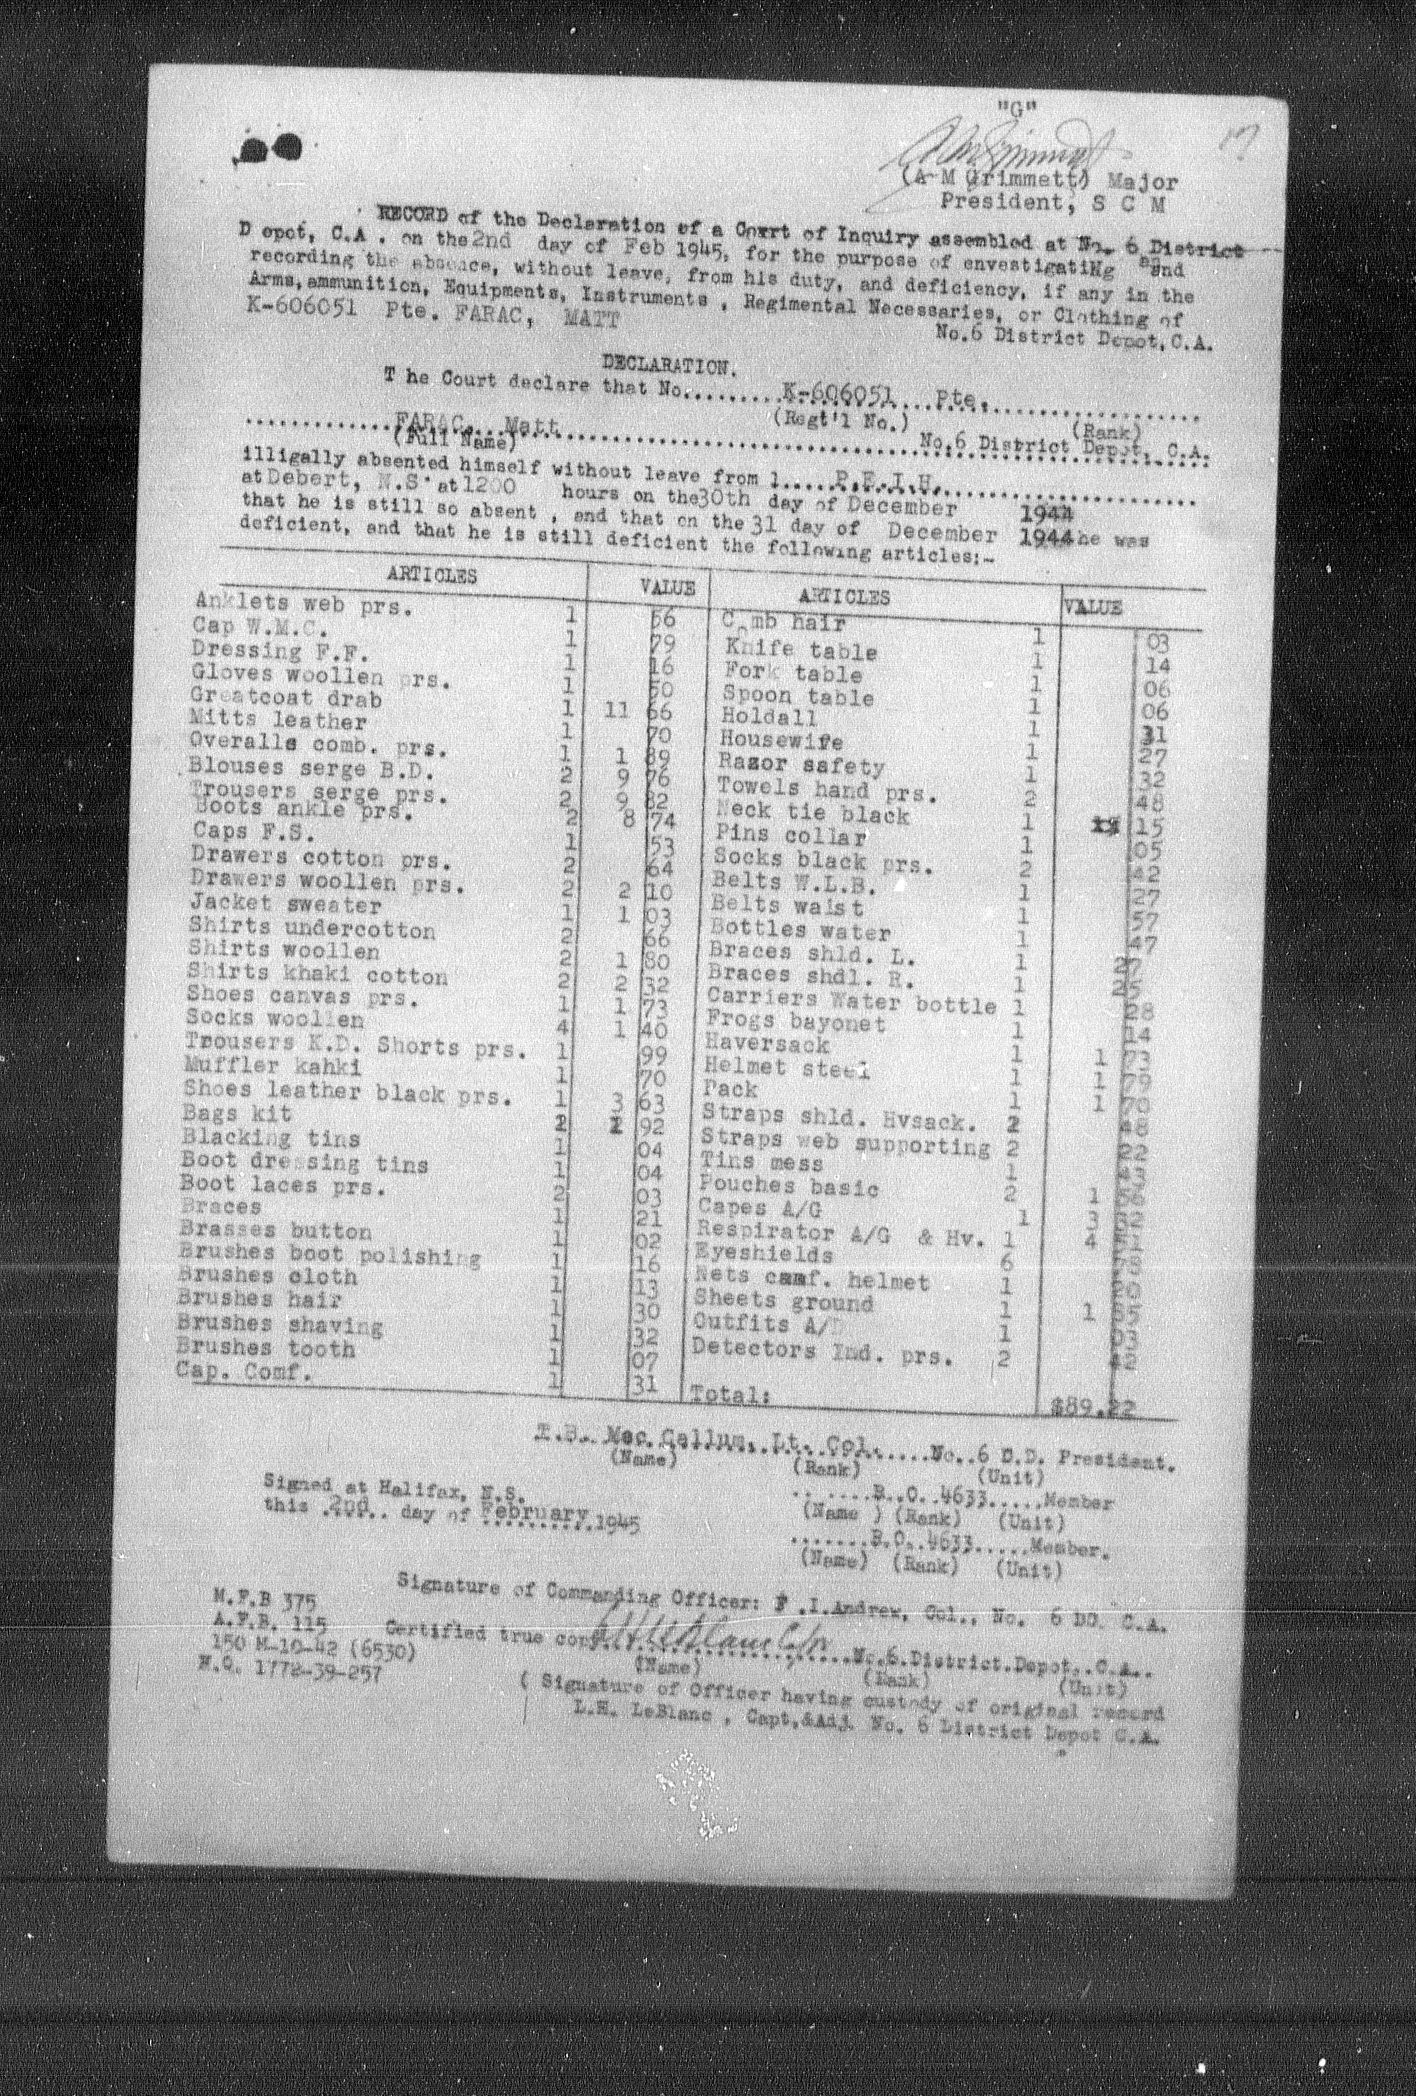 "G"
(A M Grimmett) Major
President, S C M
RECORD of the Declaration of a Court of Inquiry assembled at No. 6 District
D epot, C.A . on the 2nd day of Feb 1945, for the purpose of envestigatiNg and
recording the absence, without leave, from his duty, and deficiency, if any in the
Arms, ammunition, Equipments, Instruments , Regimental Necessaries, or Clothing of
K-606051 Pte. FARAC, MATT No.6 District Depot, C.A.
DECLARATION.
T he Court declare that No..........K-606051....Pte.....................
(Regt'l No.) (Rank)
.............FARAC, Matt........................No.6 District Depot, C.A.
(Full Name)
illigally absented himself without leave from 1.....P.E.I.H.....................
at Debert, N.S. at 1200 hours on the 30th day of December 1944
that he is still so absent , and that on the 31 day of December 1944 he was
deficient, and that he is still deficient the following articles:-
ARTICLES VALUE ARTICLES VALUE
Anklets web prs. 1 56 Comb hair 1 03
Cap W.M.C. 1 79 Knife table 1 14
Dressing F.F. 1 16 Fork table 1 06
Gloves woollen prs. 1 50 Spoon table 1 06
Greatcoat drab 1 11 66 Holdall 1 31
Mitts leather 1 70 Housewife 1 27
Overalls comb. prs. 1 1 89 Razor safety 1 32
Blouses serge B.D. 2 9 76 Towels hand prs. 2 48
Trousers serge prs. 2 9 82 Neck tie black 1 15
Boots ankle prs. 2 8 74 Pins collar 1 05
Caps F.S. 1 53 Socks black prs. 2 42
Drawers cotton prs. 2 64 Belts W.L.B. 1 27
Drawers woollen prs. 2 2 10 Belts waist 1 57
Jacket sweater 1 1 03 Bottles water 1 47
Shirts undercotton 2 66 Braces shld. L. 1 2
Shirts woollen 2 1 80 Braces shdl. R. 1 25
Shirts khaki cotton 2 2 32 Carriers Water bottle 1 28
Shoes canvas prs. 1 1 73 Frogs bayonet 1 14
Socks woollen 4 1 40 Haversack 1 1 73
Trousers K.D. Shorts prs. 1 99 Helmet steel 1 1 79
Muffler kahki 1 70 Pack 1 1 70
Shoes leather black prs. 1 3 63 Straps shld. Hvsack. 2 48
Bags kit 2 2 92 Straps web supporting 2 22
Blacking tins 1 04 Tins mess 1 43
Boot dressing tins 1 04 Pouches basic 2 1
Boot laces prs. 2 03 Capes A/G 1 3
Braces 1 21 Respirator A/G & Hv. 1 4
Brasses button 1 02 Eyeshields 6 78
Brushes boot polishing 1 16 Nets camf. helmet 1 20
Brushes cloth 1 13 Sheets ground 1 1
Brushes hair 1 30 Outfits A/D 1 03
Brushes shaving 1 32 Detectors Ind. prs. 2 42
Brushes tooth 1 07
Cap. Comf. 1 31 Total: $89.22
T.B. Mac Callum, Lt. Col.......No..6 D.D. President.
(Name) (Rank) (Unit)
Signed at Halifax, N.S. .......B..O..4633.....Member
this .2nd.. day of February.1945 (Name ) (Rank) (Unit)
.......B.O..4633.....Member.
(Name) (Rank) (Unit)
Signature of Commanding Officer: F .I.Andrew, Col., No. 6 DD. C.A.
M.F.B 375
A.F.B. 115 Certified true copy............No.6.District.Depot,.C.A..
150 M-10-42 (6530) (Name) (Rank) (Unit)
H.Q. 1772-39-257 ( Signature of Officer having custody of original record
L.H. LeBlanc , Capt,&Adj. No. 6 District Depot C.A.